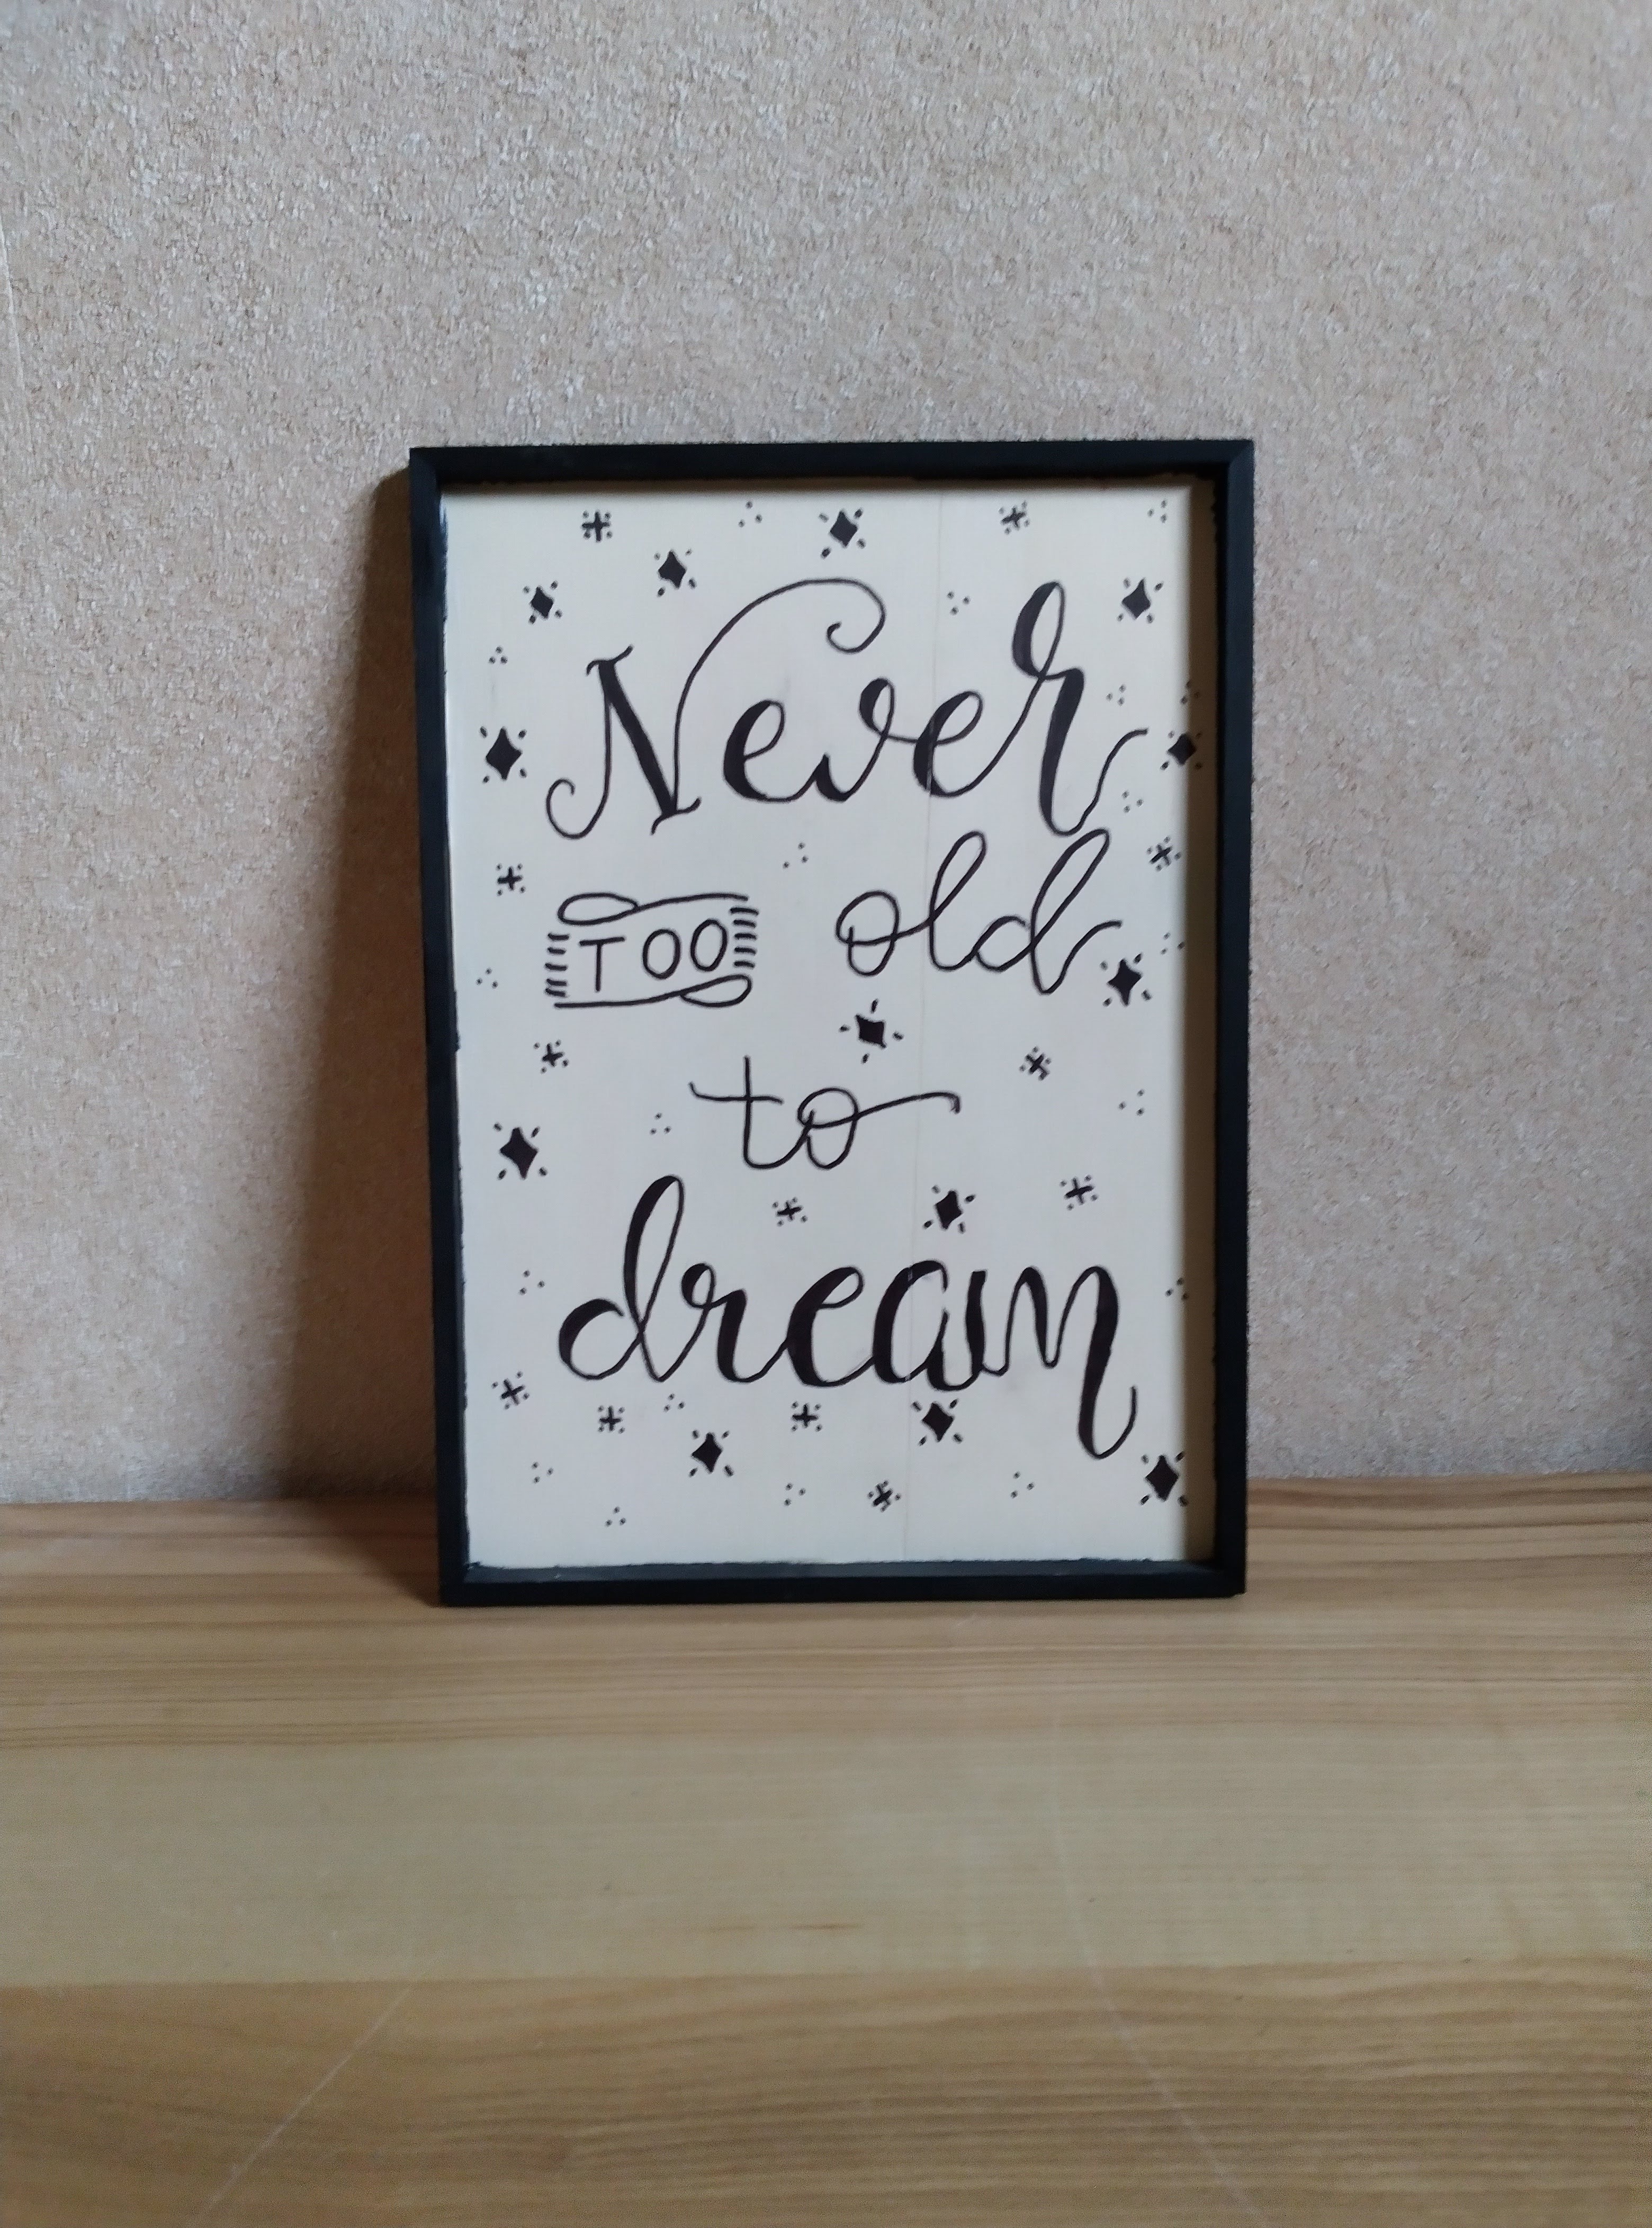 Never
TOO old
to
dream